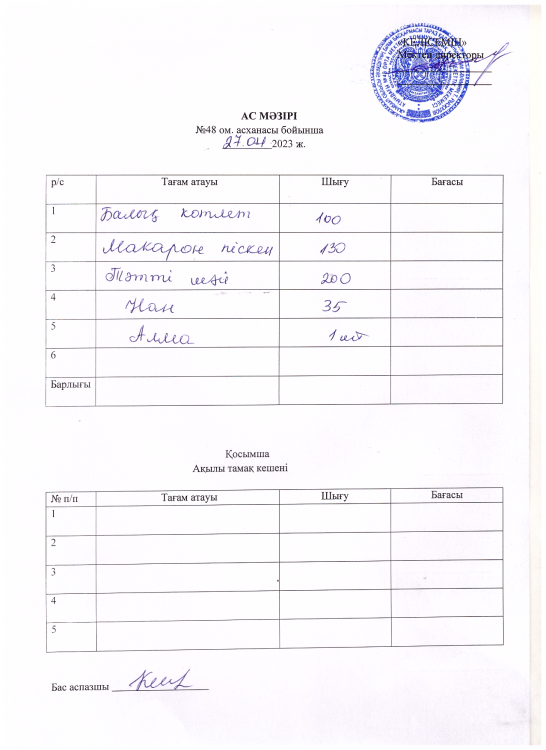 «КЕЛІСЕМІН»
Мектеп директоры
АС МӘЗІРІ
№48 ом. асханасы бойынша
27.04 2023 ж.
р/с Тағам атауы Шығу Бағасы
1 Балық котлет 100
2 Макарон піскен 130
3 Тәтті шәй 200
4 Нан 35
5 Алма 1 шт
6
Барлығы
Қосымша
Ақылы тамақ кешені
№ п/п Тағам атауы Шығу Бағасы
1
2
3
4
5
Бас аспазшы